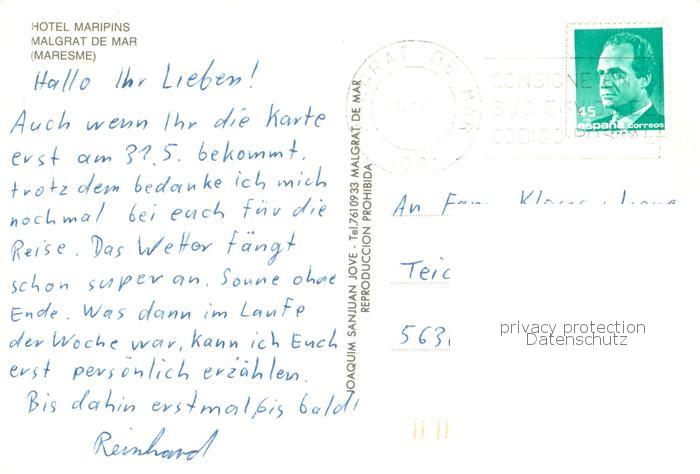 HOTEL MARIPINS
MALGRAT DE MAR
(MARESME)
Hallo Ihr Lieben!
Auch wenn Ihr die Karte
erst am 31.5. bekommt,
trotz dem bedanke ich mich
nochmal bei euch für die
Reise. Das Wetter fängt
schon super an. Sonne ohne
Ende. Was dann im Laufe
der Woche war, kann ich Euch
erst persönlich erzählen.
Bis dahin erstmal, bis bald!
Reinhard
JOAQUIM SANJUAN JOVE - Tel.7610933 MALGRAT DE MAR
REPRODUCCION PROHIBIDA
GRAT DE MAR
CONSIGNE
SUS ENVIOS
CODIGO POSTAL
45
españa correos
An Fam.
Teic
563
privacy protection
Datenschutz